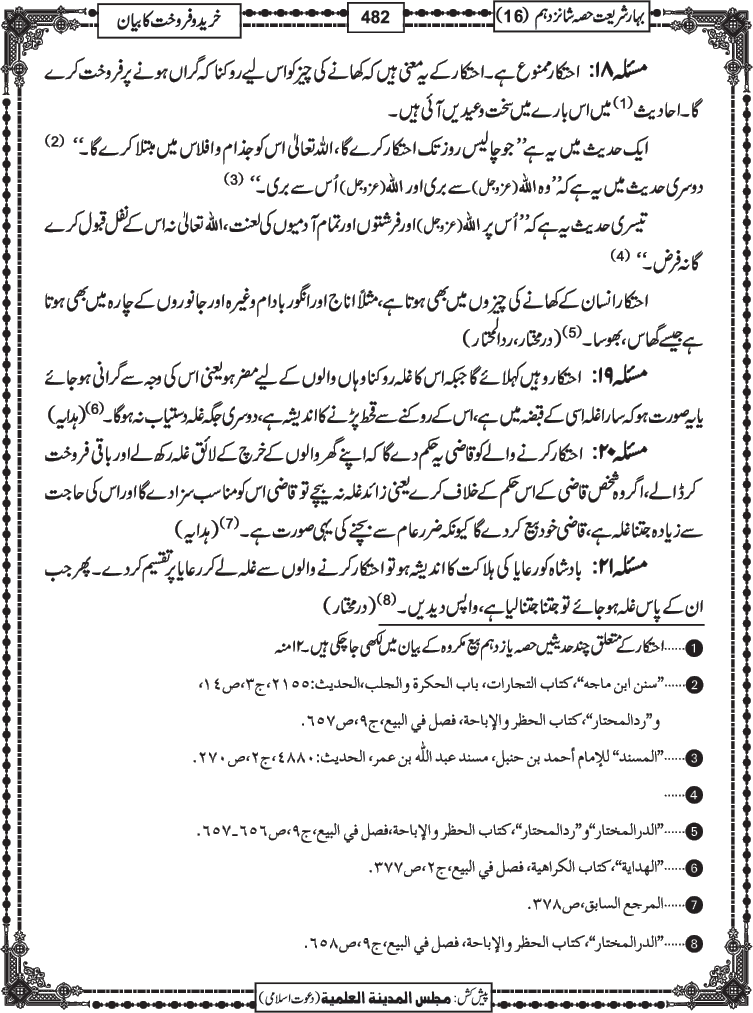 بہار شریعت حصہ شانزدہم (16)
482
خرید و فروخت کا بیان
مسئلہ ۱۸: احتکار ممنوع ہے۔ احتکار کے یہ معنی ہیں کہ کھانے کی چیز کو اس لیے روکنا کہ گراں ہونے پر فروخت کرے
گا۔ احادیث (1) میں اس بارے میں سخت وعیدیں آئی ہیں۔
ایک حدیث میں یہ ہے ”جو چالیس روز تک احتکار کرے گا، اللہ تعالیٰ اس کو جذام و افلاس میں مبتلا کرے گا۔“ (2)
دوسری حدیث میں یہ ہے کہ ”وہ اللہ (عزوجل) سے بری اور اللہ (عزوجل) اُس سے بری۔“ (3)
تیسری حدیث یہ ہے کہ ”اُس پر اللہ (عزوجل) اور فرشتوں اور تمام آدمیوں کی لعنت، اللہ تعالیٰ نہ اس کے نفل قبول کرے
گا نہ فرض۔“ (4)
احتکار انسان کے کھانے کی چیزوں میں بھی ہوتا ہے، مثلاً اناج اور انگور بادام وغیرہ اور جانوروں کے چارہ میں بھی ہوتا
ہے جیسے گھاس، بھوسا۔ (5) (درمختار، ردالمحتار)
مسئلہ ۱۹: احتکار وہیں کہلائے گا جبکہ اس کا غلہ روکنا وہاں والوں کے لیے مضر ہو یعنی اس کی وجہ سے گرانی ہو جائے
یا یہ صورت ہو کہ سارا غلہ اسی کے قبضہ میں ہے، اس کے روکنے سے قحط پڑنے کا اندیشہ ہے، دوسری جگہ غلہ دستیاب نہ ہوگا۔ (6) (ہدایہ)
مسئلہ ۲۰: احتکار کرنے والے کو قاضی یہ حکم دے گا کہ اپنے گھر والوں کے خرچ کے لائق غلہ رکھ لے اور باقی فروخت
کر ڈالے، اگر وہ شخص قاضی کے اس حکم کے خلاف کرے یعنی زائد غلہ نہ بیچے تو قاضی اس کو مناسب سزا دے گا اور اس کی حاجت
سے زیادہ جتنا غلہ ہے، قاضی خود بیع کر دے گا کیونکہ ضرر عام سے بچنے کی یہی صورت ہے۔ (7) (ہدایہ)
مسئلہ ۲۱: بادشاہ کو رعایا کی ہلاکت کا اندیشہ ہو تو احتکار کرنے والوں سے غلہ لے کر رعایا پر تقسیم کر دے۔ پھر جب
ان کے پاس غلہ ہو جائے تو جتنا جتنا لیا ہے، واپس دیدیں۔ (8) (درمختار)
1 ......احتکار کے متعلق چند حدیثیں حصہ یازدہم بیع مکروہ کے بیان میں لکھی جا چکی ہیں۔ ۱۲ منہ
2 ......”سنن ابن ماجه“، كتاب التجارات، باب الحكرة والجلب، الحديث: ٢١٥٥، ج٣، ص١٤،
و”ردالمحتار“، كتاب الحظر والإباحة، فصل في البيع، ج٩، ص٦٥٧.
3 ......”المسند“ للإمام أحمد بن حنبل، مسند عبد الله بن عمر، الحديث: ٤٨٨٠، ج٢، ص٢٧٠.
4 ......
5 ......”الدرالمختار“ و”ردالمحتار“، كتاب الحظر والإباحة، فصل في البيع، ج٩، ص٦٥٦-٦٥٧.
6 ......”الهداية“، كتاب الكراهية، فصل في البيع، ج٢، ص٣٧٧.
7 ......المرجع السابق، ص٣٧٨.
8 ......”الدرالمختار“، كتاب الحظر والإباحة، فصل في البيع، ج٩، ص٦٥٨.
پیش کش: مجلس المدينة العلمية (دعوت اسلامی)